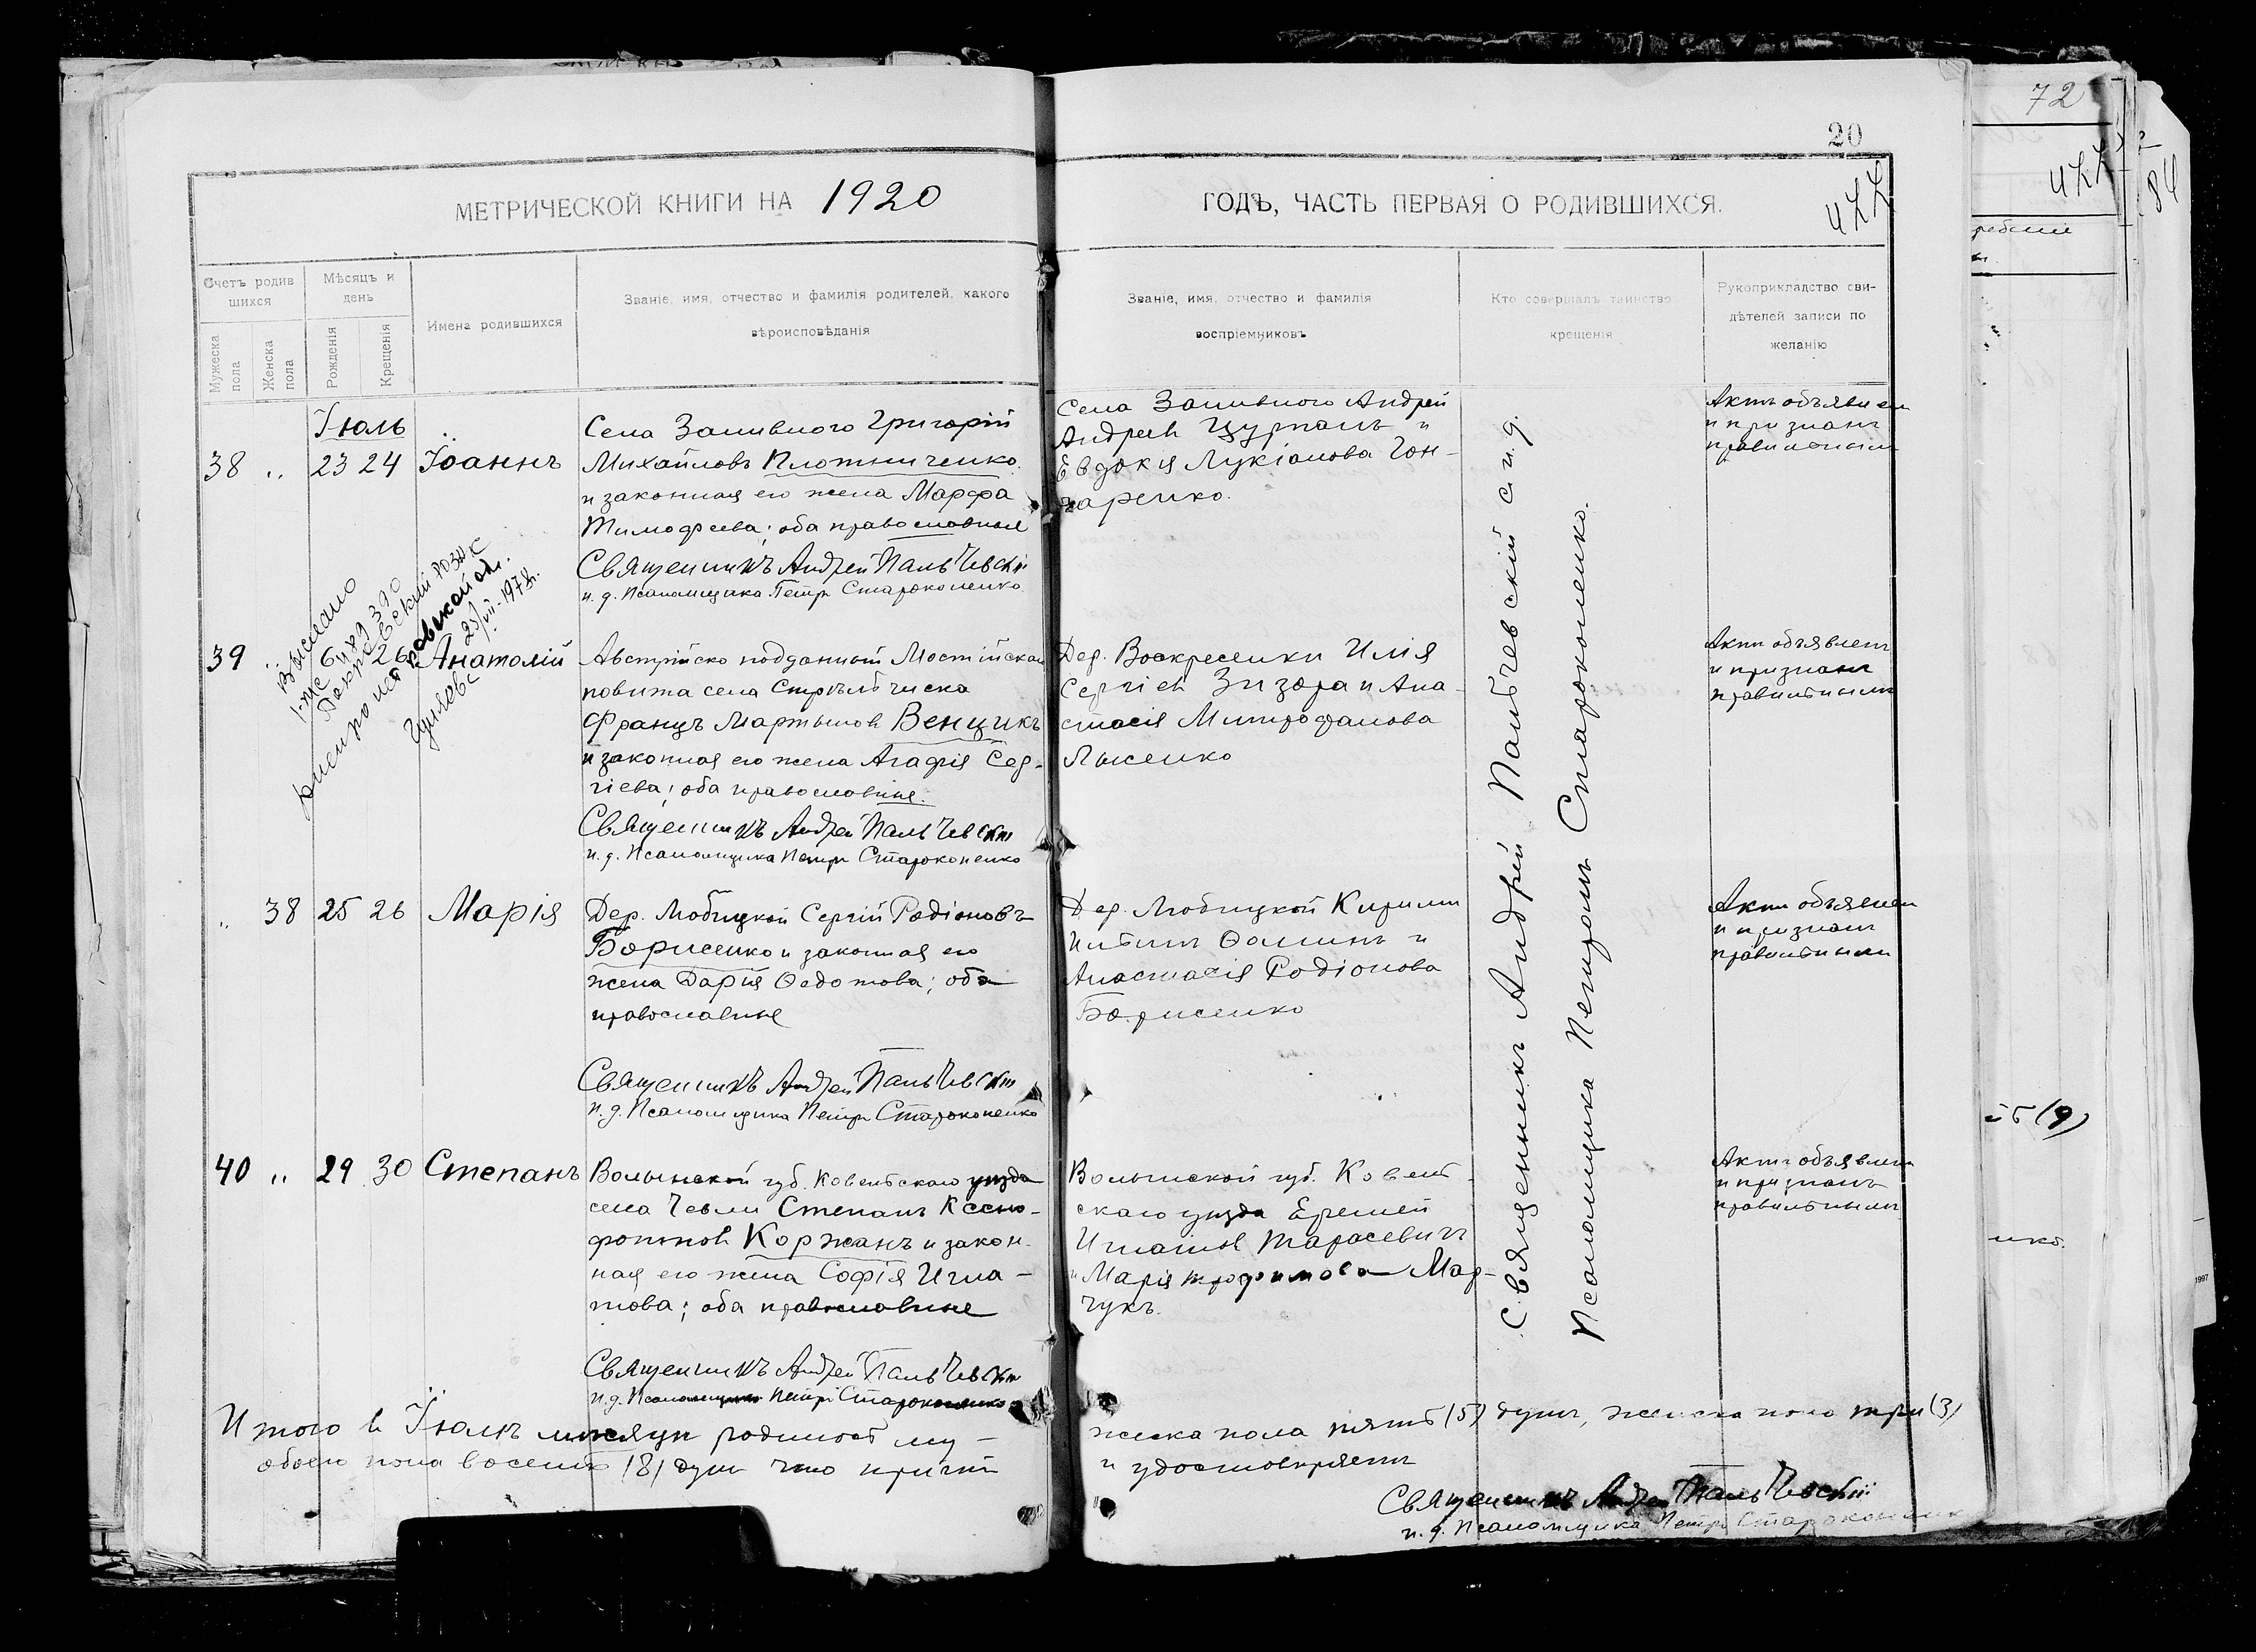 72
20
477
84
МЕТРИЧЕСКОЙ КНИГИ НА 1920
ГОДЪ, ЧАСТЬ ПЕРВАЯ О РОДИВШИХСЯ.
Счетъ родив
шихся
Мужеска пола
Женска пола
Мѣсяцъ и
день
Рожденія
Крещенія
Имена родившихся
Званіе, имя, отчество и фамилія родителей, какого
вѣроисповѣданія
Званіе, имя, отчество и фамилія
воспріемниковъ
Кто совершалъ таинство
крещенія
Рукоприкладство сви-
дѣтелей записи по
желанію
Іюль
38 „ 23 24 Іоаннъ
Села Заливного Григорій
Михайловъ Плотниченко
и законная его жена Марфа
Тимофеева; оба православные
Священникъ Андрей Пальчевскій
и. д. Псаломщика Петръ Староконенко
Села Заливного Андрей
Андреевъ Цурканъ и
Евдокія Лукіанова Гон-
чаренко.
Актъ объявленъ
и признанъ
правильнымъ
Выслано
25/III-1978г.
39 „ 6 26 Анатолій
Австрійско подданный Мостійскаго
повита села
Францъ Мартыновъ Венцикъ
и законная его жена Агафія Сер-
гіева; оба православные.
Священникъ Андрей Пальчевскій
и. д. Псаломщика Петръ Староконенко
Дер. Воскресенки Илія
Сергіевъ Зизора и Ана-
стасія Митрофанова
Лысенко
Актъ объявленъ
и признанъ
правильнымъ
„ 38 25 26 Марія
Дер. Любицкой Сергій Родіоновъ
Борисенко и законная его
жена Дарія Ѳедотова; оба
православные
Священникъ Андрей Пальчевскій
и. д. Псаломщика Петръ Староконенко
Дер. Любицкой Кириллъ
Ильинъ Ѳоминъ и
Анастасія Родіонова
Борисенко
Актъ объявленъ
и признанъ
правильнымъ
40 „ 29 30 Степанъ
Волынской губ. Ковельскаго уѣзда
села Степанъ Ксено-
фонтовъ Коржанъ и закон-
ная его жена Софія Игна-
това; оба православные
Священникъ Андрей Пальчевскій
и. д. Псаломщика Петръ Староконенко
Волынской губ. Ковель-
скаго уѣзда Еремей
Игнатовъ Тарасевичъ
и Марія Трофимова Мар-
чукъ.
Актъ объявленъ
и признанъ
правильнымъ
Священникъ Андрей Пальчевскій с и. д.
Псаломщика Петромъ Староконенко.
Итого въ Іюлѣ мѣсяцѣ родилось му-
жеска пола пять (5) душъ, женска пола три (3)
обоего пола восемь (8) душъ что причтъ
и удостовѣряетъ
Священникъ Андрей Пальчевскій
и. д. Псаломщика Петръ Староконенко